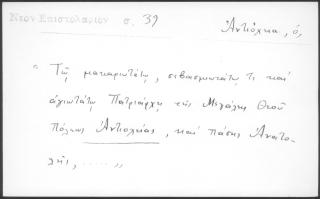 Νεον Επιστολαριον σ. 39
Ἀντιόχεια, ἡ,
"Τῷ μακαριωτάτῳ, σεβασμιωτάτῳ τε καὶ
ἁγιωτάτῳ Πατριάρχῃ τῆς Μεγάλης Θεοῦ
Πόλεως Ἀντιοχείας, καὶ πάσης Ἀνατο-
λῆς, ......."